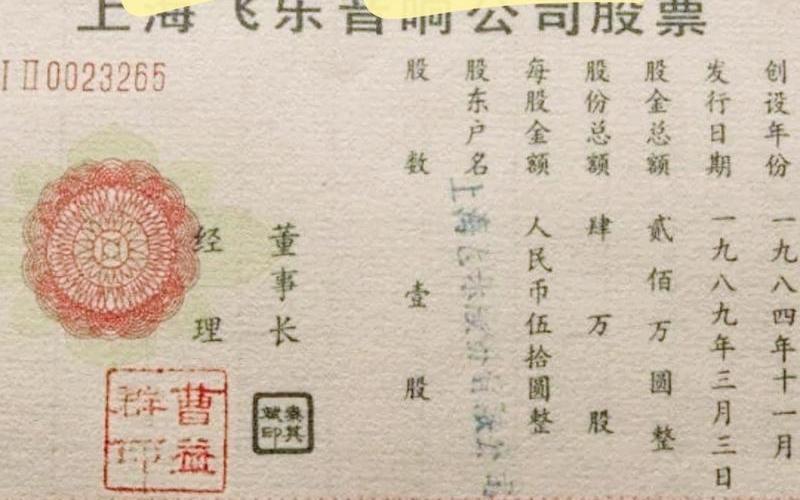 上海飞乐音响公司股票
ⅠⅡ0023265
创设年份 一九八四年十一月
发行日期 一九八九年三月三日
股金总额 贰佰万圆整
股份总额 肆万股
每股金额 人民币伍拾圆整
股东户名
股数 壹股
董事长
经理
秦其斌印
曹益